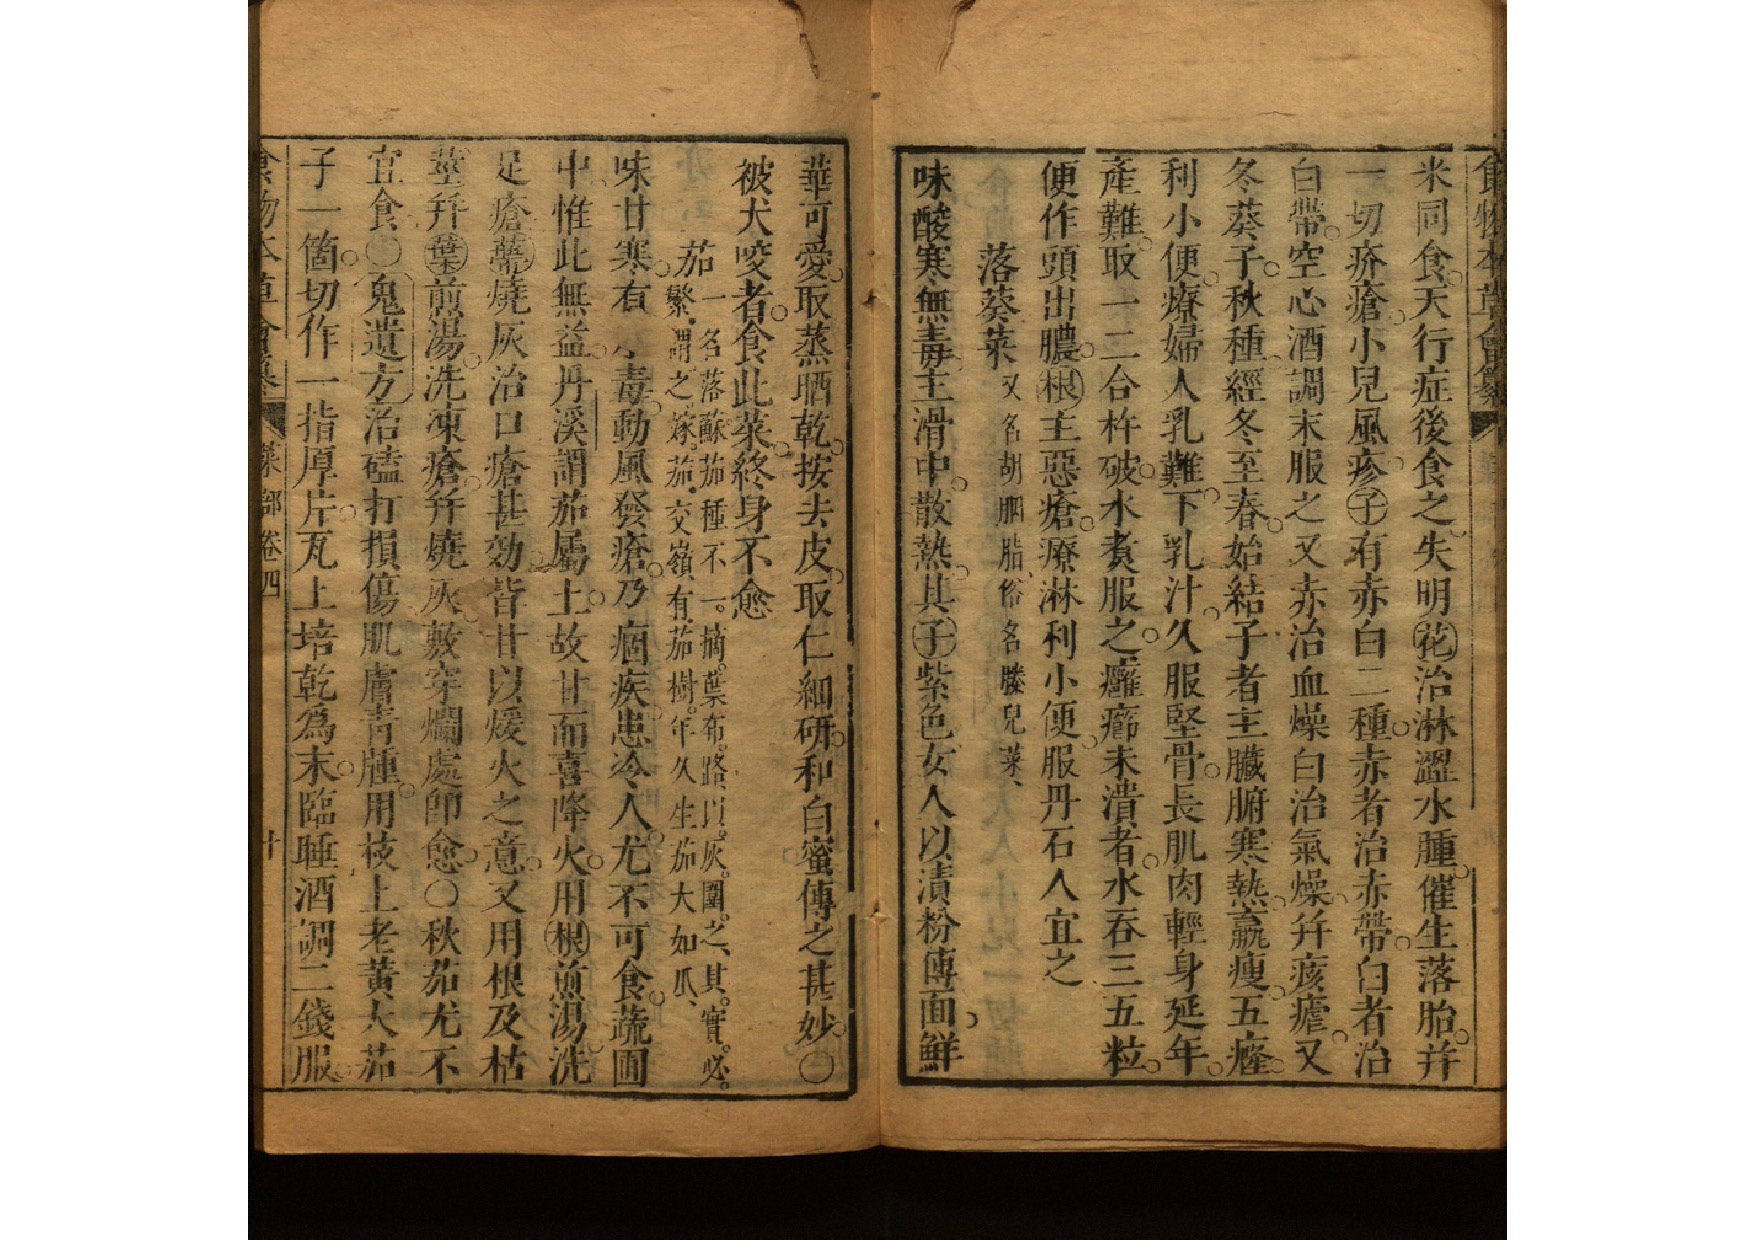 食物本草會纂
米同食天行症後食之失明花治淋澀水腫催生落胎并
一切疥瘡小兒風疹子有赤白二種赤者治赤帶白者治
白帶空心酒調末服之又赤治血燥白治氣燥并痎瘧又
冬葵子秋種經冬至春始結子者主臟腑寒熱羸瘦五癃
利小便療婦人乳難下乳汁久服堅骨長肌肉輕身延年
產難取一二合杵破水煑服之癰癤未潰者水吞三五粒
便作頭出膿根主惡瘡療淋利小便服丹石人宜之
落葵菜又名胡胭脂俗名滕兒菜
味酸寒無毒主滑中散熱其子紫色女人以漬粉傅面鮮
華可愛取蒸晒乾按去皮取仁細研和白蜜傅之甚妙〇
被犬咬者食此菜終身不愈
茄一名落蘇茄種不一摘葉布路以灰圍之其實必
繁謂之嫁茄交嶺有茄樹年久生茄大如瓜
味甘寒有小毒動風發瘡乃痼疾患冷人尤不可食蔬圃
中惟此無益丹溪謂茄屬土故甘而喜降火用根煎湯洗
足瘡蒂燒灰治口瘡甚効皆甘以煖火之意又用根及枯
莖并葉煎湯洗凍瘡并燒灰敷穿爛處卽愈〇秋茄尤不
宜食〇鬼遺方治磕打損傷肌膚青腫用枝上老黃大茄
子一箇切作一指厚片瓦上培乾爲末臨睡酒調二錢服
食物本草會纂 菜部卷四 十